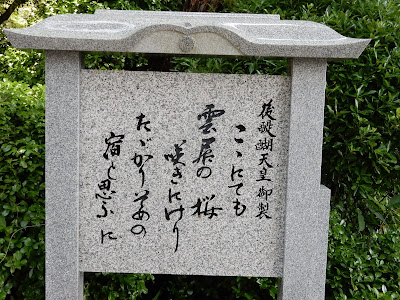 後醍醐天皇御製
こゝにても
雲居の桜
咲きにけり
たゞかり菜の
宿と思ふに